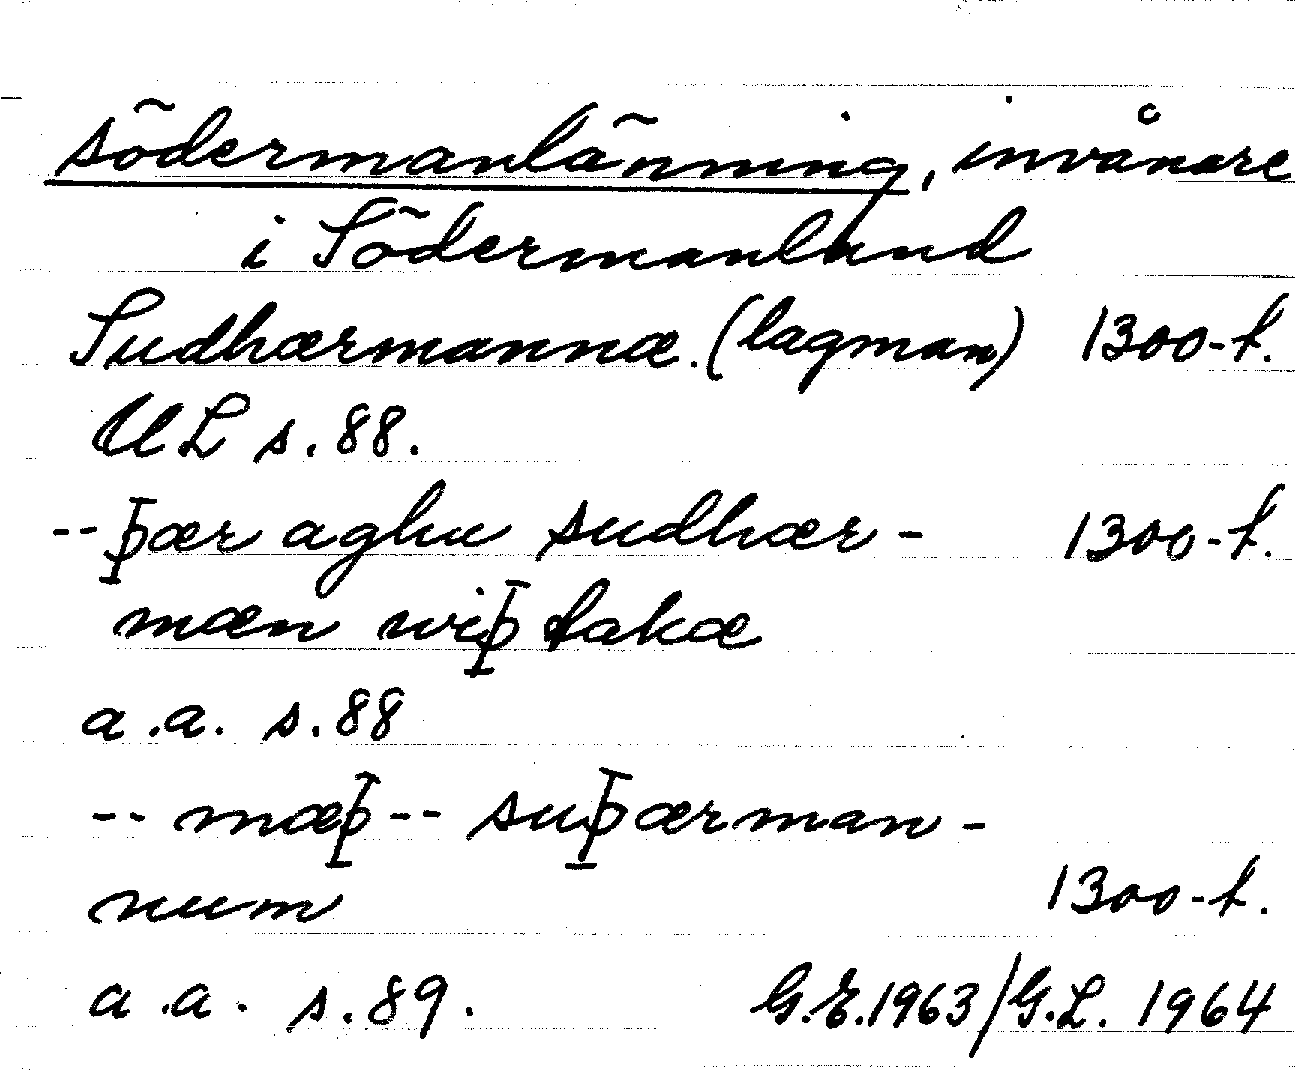 södermanlänning, invånare
i Södermanland
Sudhærmannæ. (lagman) 1300-t.
UL s. 88.
-- þær aghu sudhær- 1300-t.
mæn wiþ takæ
a.a. s. 88
-- mæþ -- suþærman-
num 1300-t.
a.a. s. 89. G.E. 1963/G.L. 1964